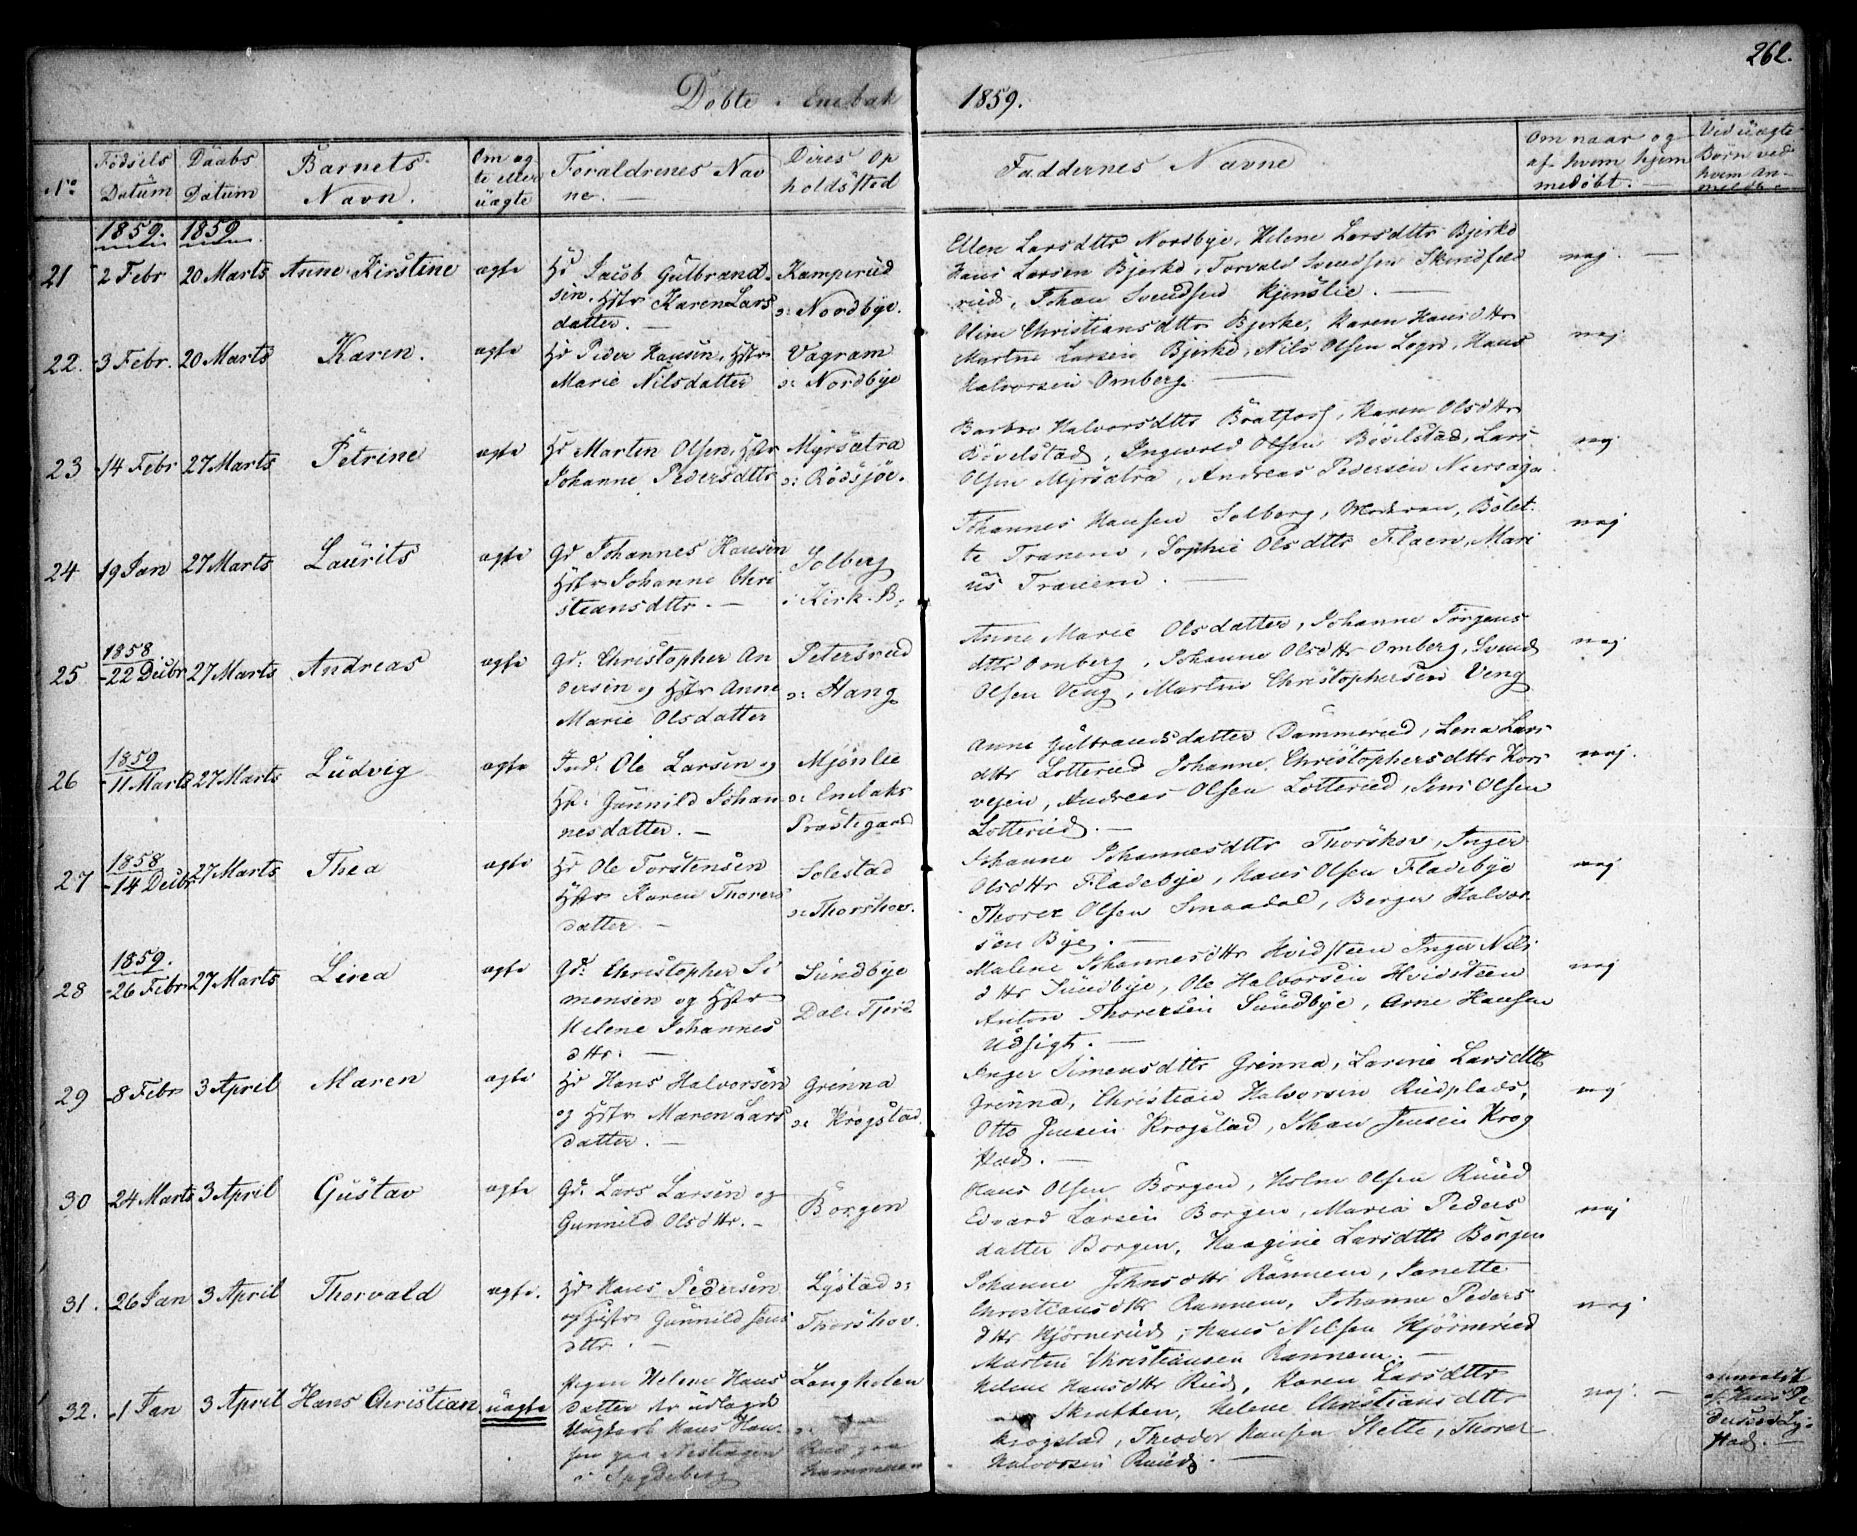 262.
Døbte i Enebak 1859.
No
Fødsels Datum
Daabs Datum
Barnets Navn.
Om ægte eller uægte
Forældrenes Navne. —
Deres Opholdssted
Faddernes Navne
Om naar og af hvem hjemmedøbt. —
Ved uægte Børn ved hvem anmeldte
1859. 1859
21 2 Febr 20 Marts Anne Kirstine ægte
Hd Jacob Gulbrand-
sen, Hstr Karen Lars
datter. —
Kamperud
o: Nordbye.
Ellen Larsdttr Nordbye, Helene Larsdttr Bjerke
Hans Larsen Bjerke, Torvald Svendsen Skindfeld
rud, Johan Svendsen Kjenslie. —
nej. —
22. 3 Febr. 20 Marts Karen. ægte
Hd Peder Hansen, Hstr
Marie Nilsdatter
Vagram
o: Nordbye
Oline Christiansdttr Bjerke, Karen Hansdttr
Martne Larsen Bjerke, Nils Olsen Logn, Hans
Halvorsen Omberg. —
nej
23 14 Febr 27 Marts Petrine ægte
Hd Marten Olsen, Hstr
Johanne Pedersdttr
Myrsætra
o: Rødsjøe.
Barbro Halvorsdttr Bratfoss, Karen Olsdttr
Bøvelstad, Ingevald Olsen Bøvelstad, Lars
Olsen Myrsætra, Andreas Pedersen Nærsaga
nej
24 19 Jan 27 Marts Laurits ægte
Gd Johannes Hansen
Hstr Johanne Chri
stiansdttr. —
Solberg
i Kirk. B.
Johannes Hansen Solberg, Moderen, Bolet-
te Tranem, Sophie Olsdttr Flaen, Mari
us Tranem. —
nej
1858
25 22 Decbr 27 Marts Andreas ægte
Gd: Christopher An
dersen og Hstr Anne
Marie Olsdatter
Petersrud
o: Haug
Anne Marie Olsdatter, Johanne Jørgens
dttr Omberg, Johanne Olsdttr Omberg, Svend
Olsen Veng, Martin Christophersen Veng
nej
1859
26 11 Marts 27 Marts Ludvig ægte
Ind: Ole Larsen og
Hst: Gunnild Johan
nesdatter. —
Mjønlie
o: Enebaks
Præstegaard
Anne Gulbrandsdatter Dammerud, Lena Lars-
dttr Lotterud Johanne Christophersdttr Kors
vejen, Andreas Olsen Lotterud, Jens Olsen
Lotterud. —
nej.
1858
27 14 Decbr 27 Marts Thea ægte
Hd Ole Torstensen
Hstr Karen Thorers
datter. —
Solestad
o: Thorshov.
Johanne Johannesdttr Thorshov, Inger
Olsdttr Fladebye, Hans Olsen Fladebye
Thorer Olsen Smaadal, Berger Halvor
sen Bye. —
nej
1859.
28 26 Febr 27 Marts Lina ægte
Gd: Christopher Si
mensen og Hstr
Helene Johannes
dttr: —
Sundbye
Dal: Fjerd.
Malene Johannesdttr Hvidsteen Inger Nils
dttr Sundbye, Ole Halvorsen Hvidsteen
Anton Thorersen Sundbye, Arne Hansen
Udsigt. —
nej
29 8 Febr 3 April Maren ægte
Hd Hans Halvorsen
og Hstr Maren Lars
datter. —
Grinna
o: Krogstad.
Inger Simensdttr Grinna, Larine Larsdttr
Grinna, Christian Halvorsen Rudplads,
Otto Jensen Krogstad, Johan Jensen Krog
stad. —
nej
30 24 Marts 3 April Gustav ægte
Gd: Lars Larsen og
Gunnild Olsdttr. —
Borgen
Hans Olsen Borgen, Holm Olsen Ruud
Edvard Larsen Borgen, Maria Peders
datter Borgen, Haagine Larsdttr Borgen
nej
31. 26 Jan 3 April Thorvald ægte.
Hd Hans Pedersen
og Hustr Gunnild Jens
dttr. —
Lystad o:
Thorshov.
Johanne Johnsdttr Rannem, Janette
Christiansdttr Rannem, Johanne Peders
dttr Hjørnerud, Hans Nilsen Hjørnerud
Martin Christiansen Rannem. —
nej
32. 1 Jan 3 April Hans Christian uægte
Pigen Helene Hans
datter. Er udlagt
Ungkarl Hans Han-
sen paa Nesthagen
i Spydeberg
Langholen
o:
Rud paa
Hammeren
Helene Hansdttr Rud, Karen Larsdttr
Skrabben, Helene Christiansdttr
Krogstad, Theodor Hansen Slette, Thorer
Halvorsen Ruud. —
nej. —
Anmeldt
af Hans Pe
dersen Ly-
stad. —